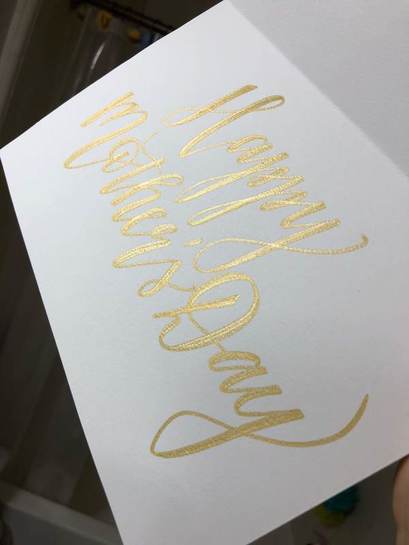 Happy
Mother's Day